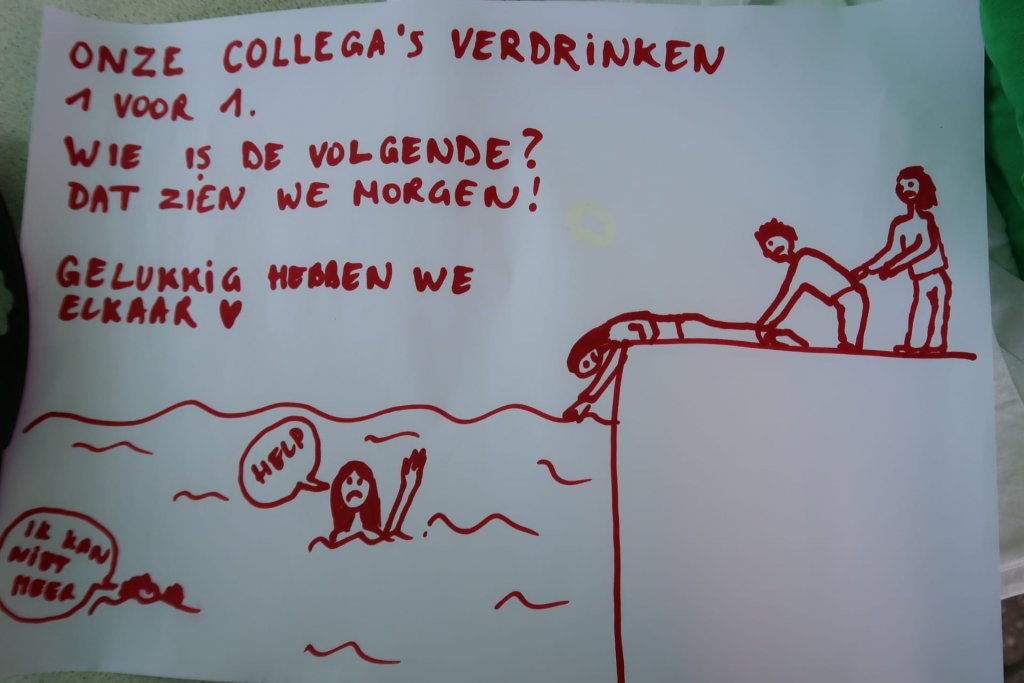 ONZE COLLEGA'S VERDRINKEN
1 VOOR 1.
WIE IS DE VOLGENDE?
DAT ZIEN WE MORGEN!
GELUKKIG HEBBEN WE
ELKAAR ♥
HELP
IK KAN
NIET
MEER